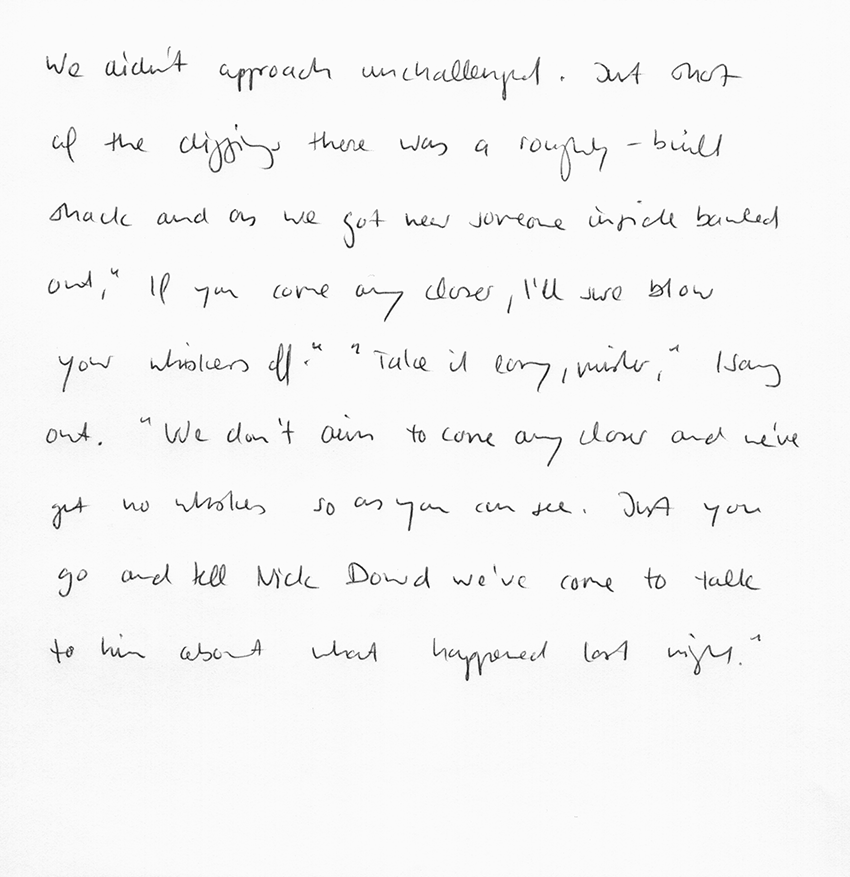 We didn't approach unchallenged. Just short
of the diggings there was a roughly-built
shack and as we got near someone inside bawled
out, "If you come any closer, I'll sure blow
your whiskers off." "Take it easy, mister," I sang
out. "We don't aim to come any closer and we've
got no whiskers so as you can see. Just you
go and tell Nick Dowd we've come to talk
to him about what happened last night."